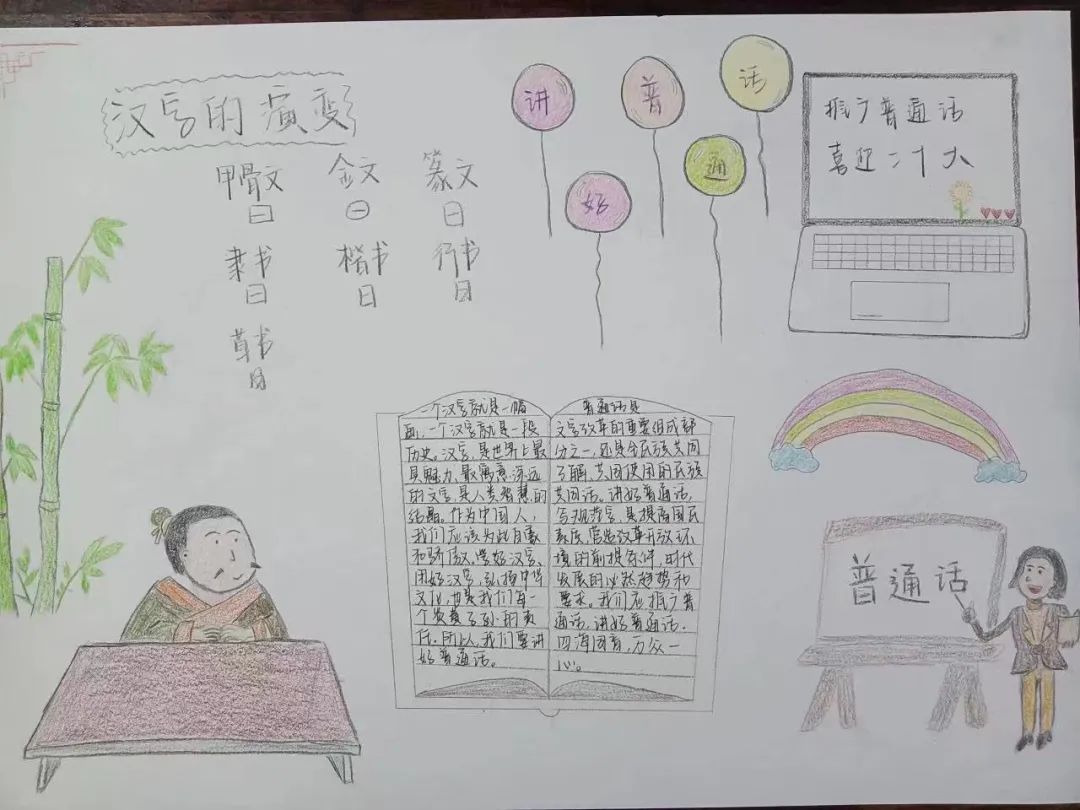 汉字的演变
甲骨文 金文 篆文
日 日 日
隶书 楷书 行书
日 日 日
草书
日
讲
好
普
通
话
推广普通话
喜迎二十大
一个汉字就是一幅
画,一个汉字就是一段
历史。汉字,是世界上最
具魅力、最寓意深远
的文字,是人类智慧的
结晶。作为中国人,
我们应该为此自豪
和骄傲。学好汉字、
用好汉字,弘扬中华
文化,也是我们每一
个炎黄子孙的责
任。团人,我们要讲
好普通话。
普通话是
文字改革的重要组成部
分之一,还是全民族共同
了解、共同使用的民族
共同话。讲好普通话,
写规范字,是提高国民
素质,营造改革开放环
境的前提条件,时代
发展的必然趋势和
要求。我们应推广普
通话,讲好普通话。
四海同音,万众一
心。
普通话